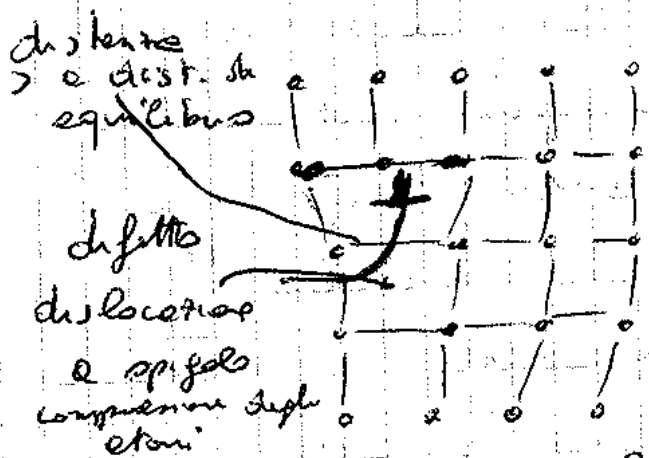 distanze
> a dist. di
equilibrio
difetto
dislocazione
a spigolo
compressione degli
atomi